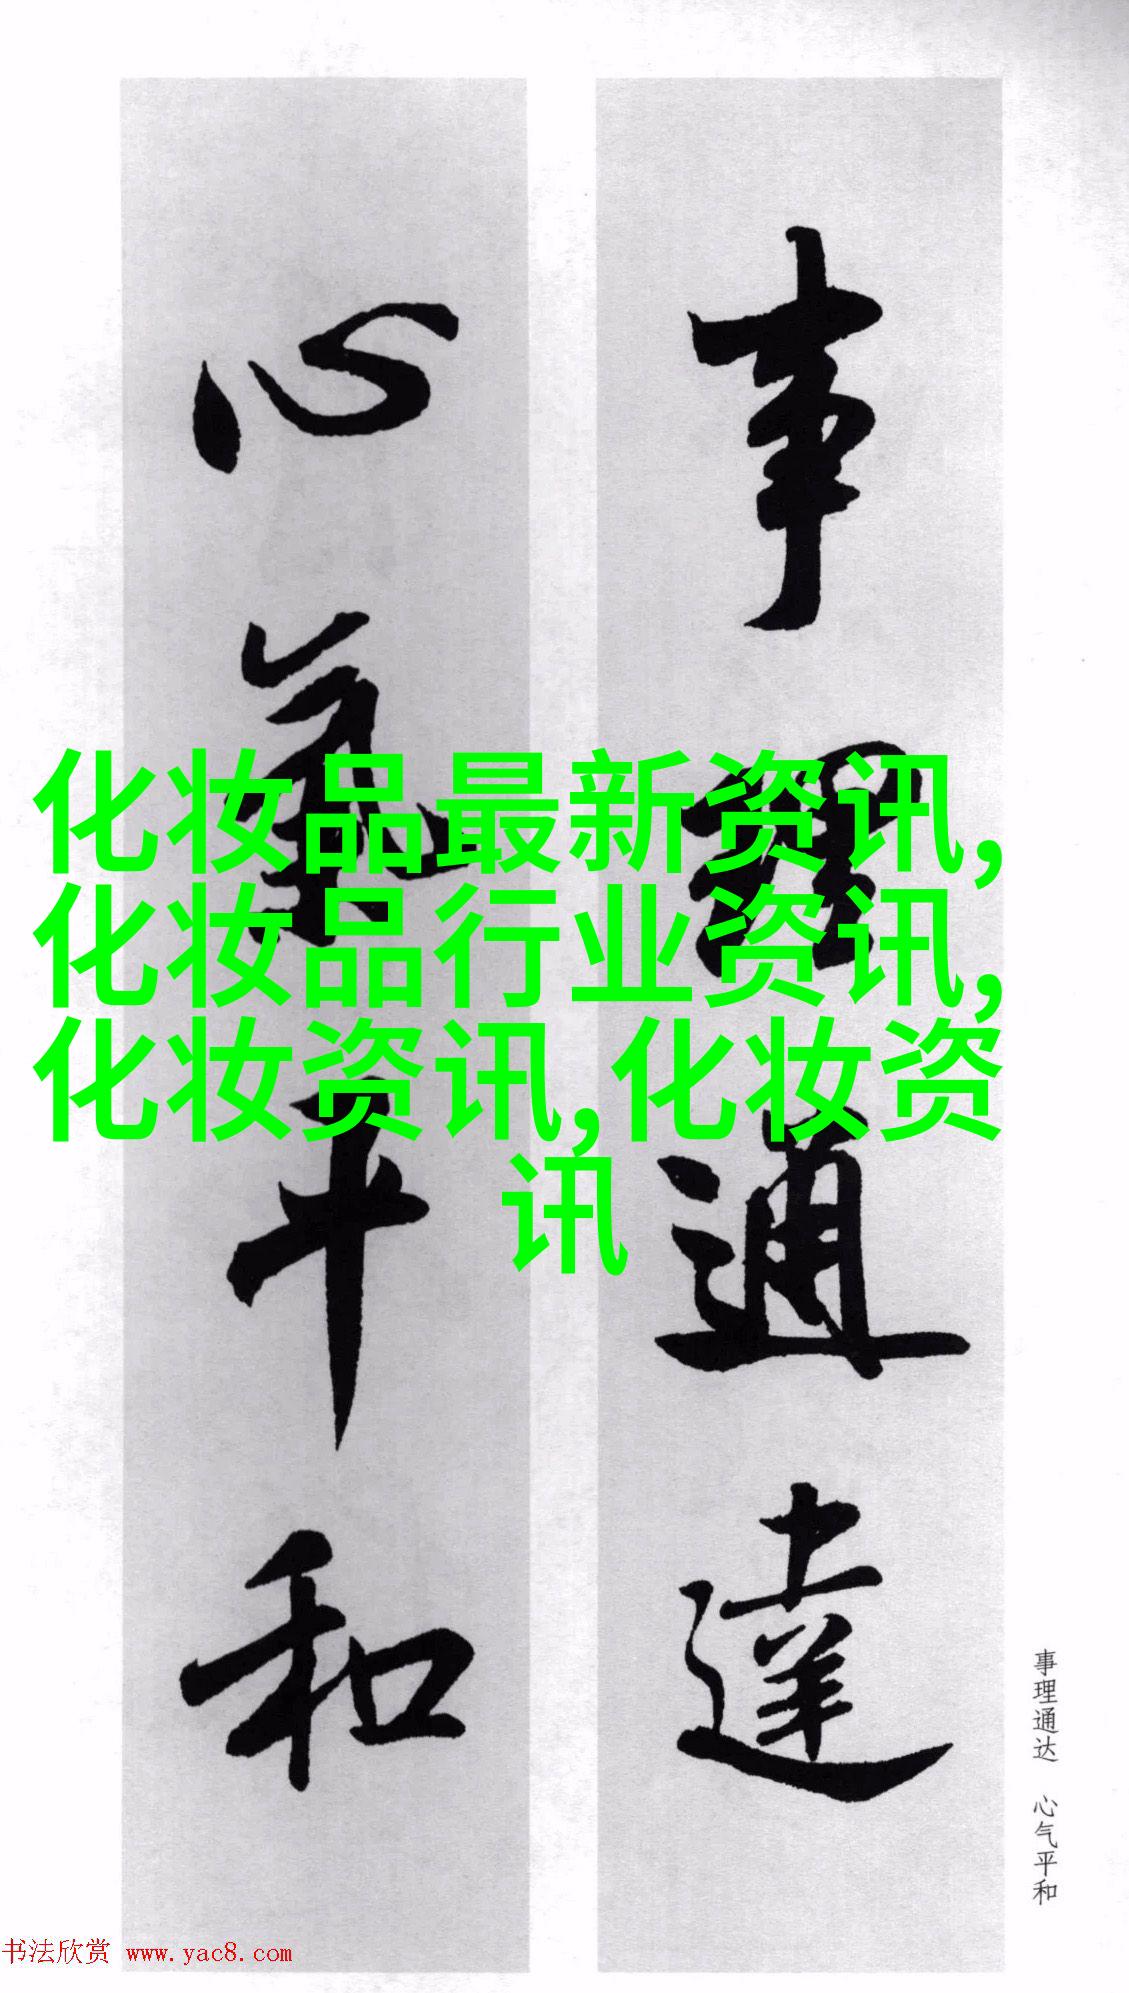 事理通達
心氣平和
化妆品最新资讯,
化妆品行业资讯,
化妆资讯,化妆资
讯
事理通达 心气平和
书法欣赏 www.yac8.com